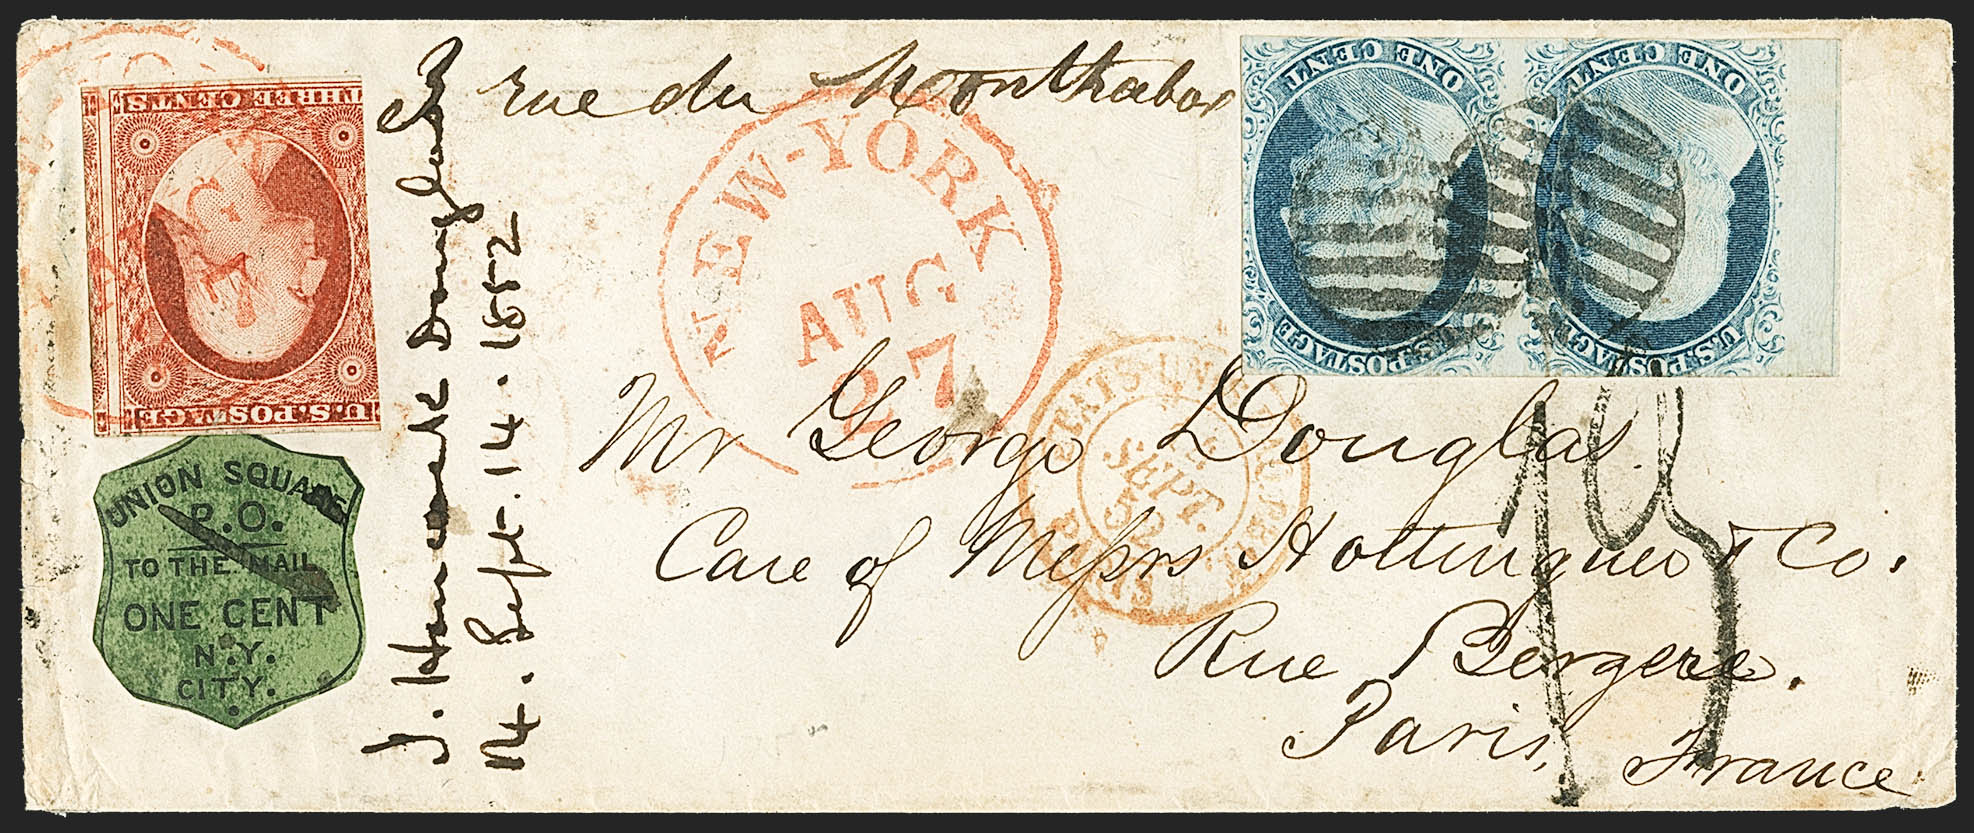 THREE CENTS
U.S. POSTAGE
UNION SQUARE
P.O.
TO THE MAIL
ONE CENT
N.Y.
CITY.
J. Hammond Douglas
14. Sept. 14. 1852
rue du Monthabor
NEW-YORK
AUG
27
ONE CENT
U.S. POSTAGE
ONE CENT
U.S. POSTAGE
ETATS-UNIS
SEPT.
52
PARIS
Mr George Douglas.
Care of Messrs Hottinguer & Co.
Rue Bergere.
Paris,
France